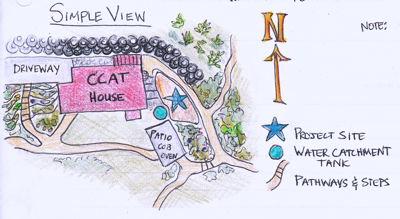 SIMPLE VIEW
NOTE:
N
DRIVEWAY
CCAT
HOUSE
PATIO
COB
OVEN
PROJECT SITE
WATER CATCHMENT
TANK
PATHWAYS & STEPS